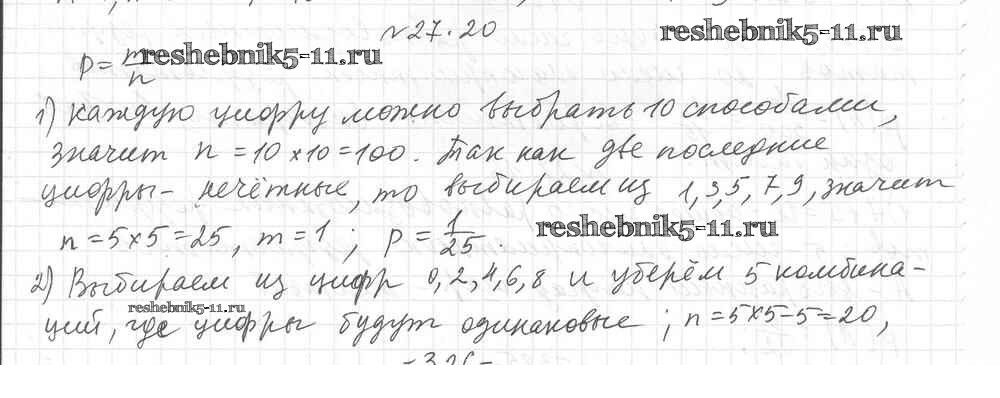 №27.20
reshebnik5-11.ru
reshebnik5-11.ru
P = m/n
1) каждую цифру можно выбрать 10 способами,
значит n = 10 × 10 = 100. Так как две последние
цифры - нечётные, то выбираем из 1, 3, 5, 7, 9, значит
n = 5 × 5 = 25, m = 1; P = 1/25.
reshebnik5-11.ru
2) Выбираем из цифр 0, 2, 4, 6, 8 и уберём 5 комбина-
reshebnik5-11.ru
ций, где цифры будут одинаковые; n = 5 × 5 - 5 = 20,